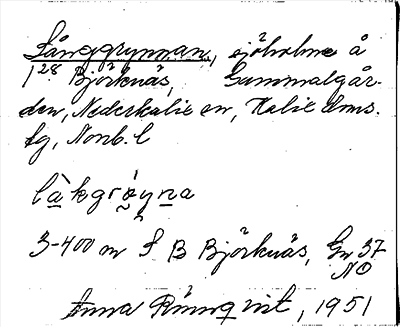 Långgrynnan, sjöholme å
1²⁸ Björknäs, Gammalgår-
den, Nederkalix sn, Kalix doms.
fg, Nonb. l
làkgrǿyna
3-400 m S B Björknäs, Gn 37
NO
Anna Rönnqvist, 1951